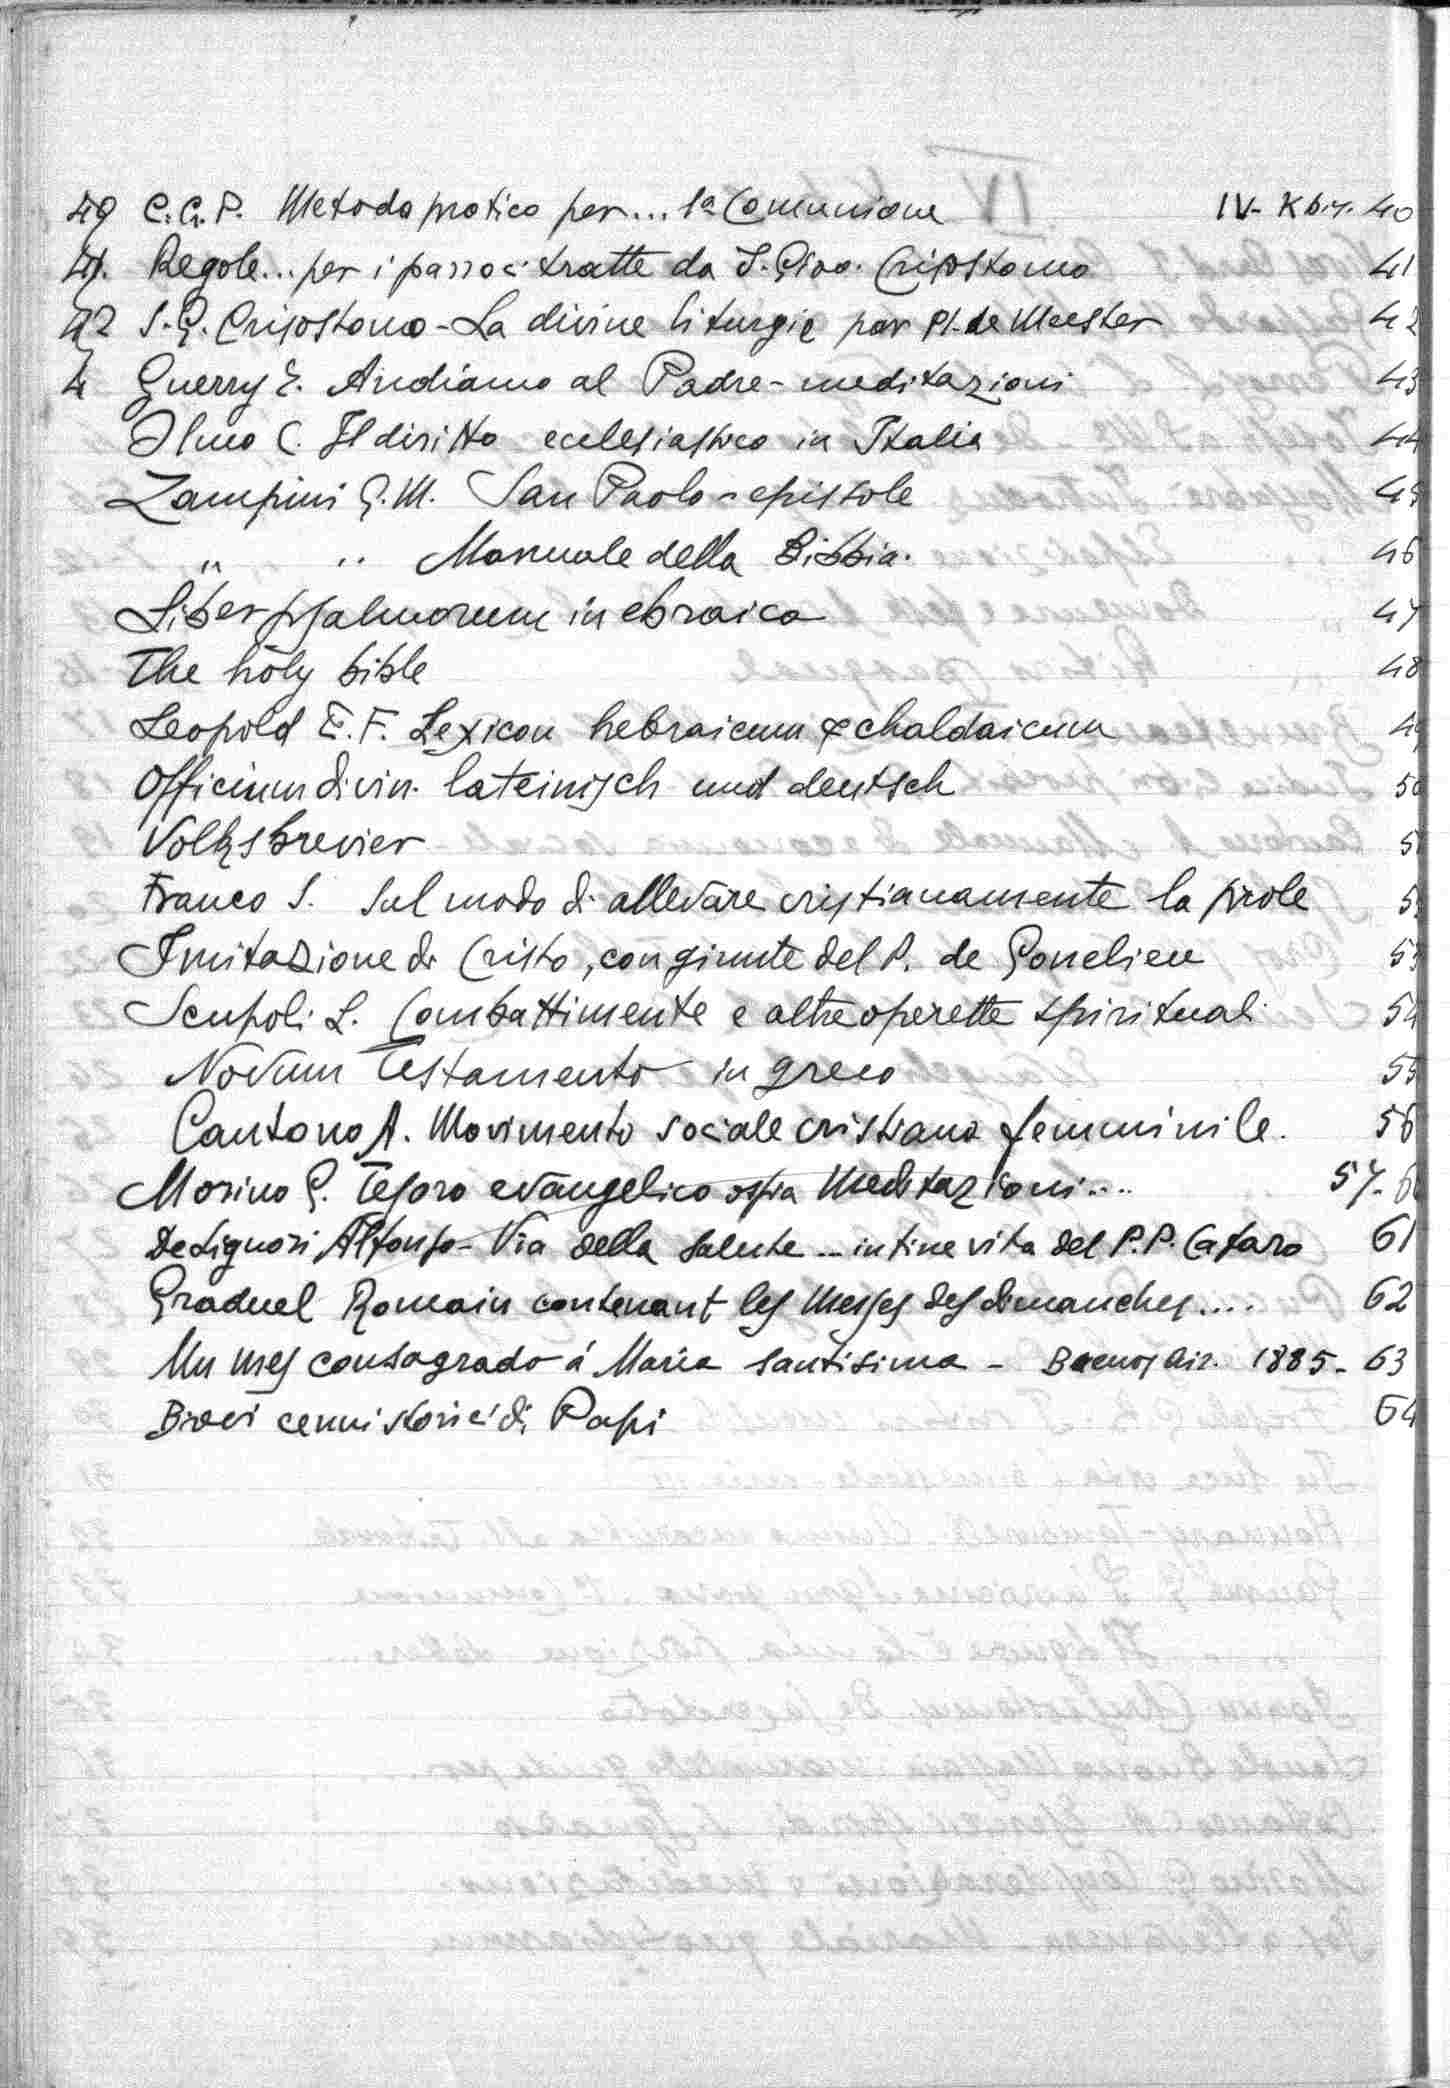 40 C.G.P. Metodo pratico per... 1a Comunione IV- K bis. 40
41. Regole... per i parroci tratte da S. Giov. Crisostomo 41
42 S. G. Crisostomo - La divine liturgie par Pl. de Meester 42
4 Guerry E. Andiamo al Padre - meditazioni 43
Olmo C. Il diritto ecclesiastico in Italia 44
Zampini G. M. San Paolo - epistole 45
" " Manuale della Bibbia. 46
Liber psalmorum in ebraico 47
The holy bible 48
Leopold E. F. Lexicon hebraicum & chaldaicum 49
Officium divin. lateinisch und deutsch 50
Volksbrevier 5
Franco S. Sul modo di allevare cristianamente la prole 5
Imitazione di Cristo, con giunte del P. de Gonelieu 53
Scupoli L. Combattimente e altre operette spirituali 54
Novum Testamento in greco 55
Cantono A. Movimento sociale cristiano femminile. 56
Morino G. Tesoro evangelico ossia Meditazioni.... 57-6
De Liguori Alfonso - Via della salute ... in fine vita del P. P. Cafaro 61
Graduel Romain contenant les Messes des dimanches.... 62
Un mes consagrado á Maria santisima - Buenos Air. 1885 - 63
Brevi cenni storici di Papi 64